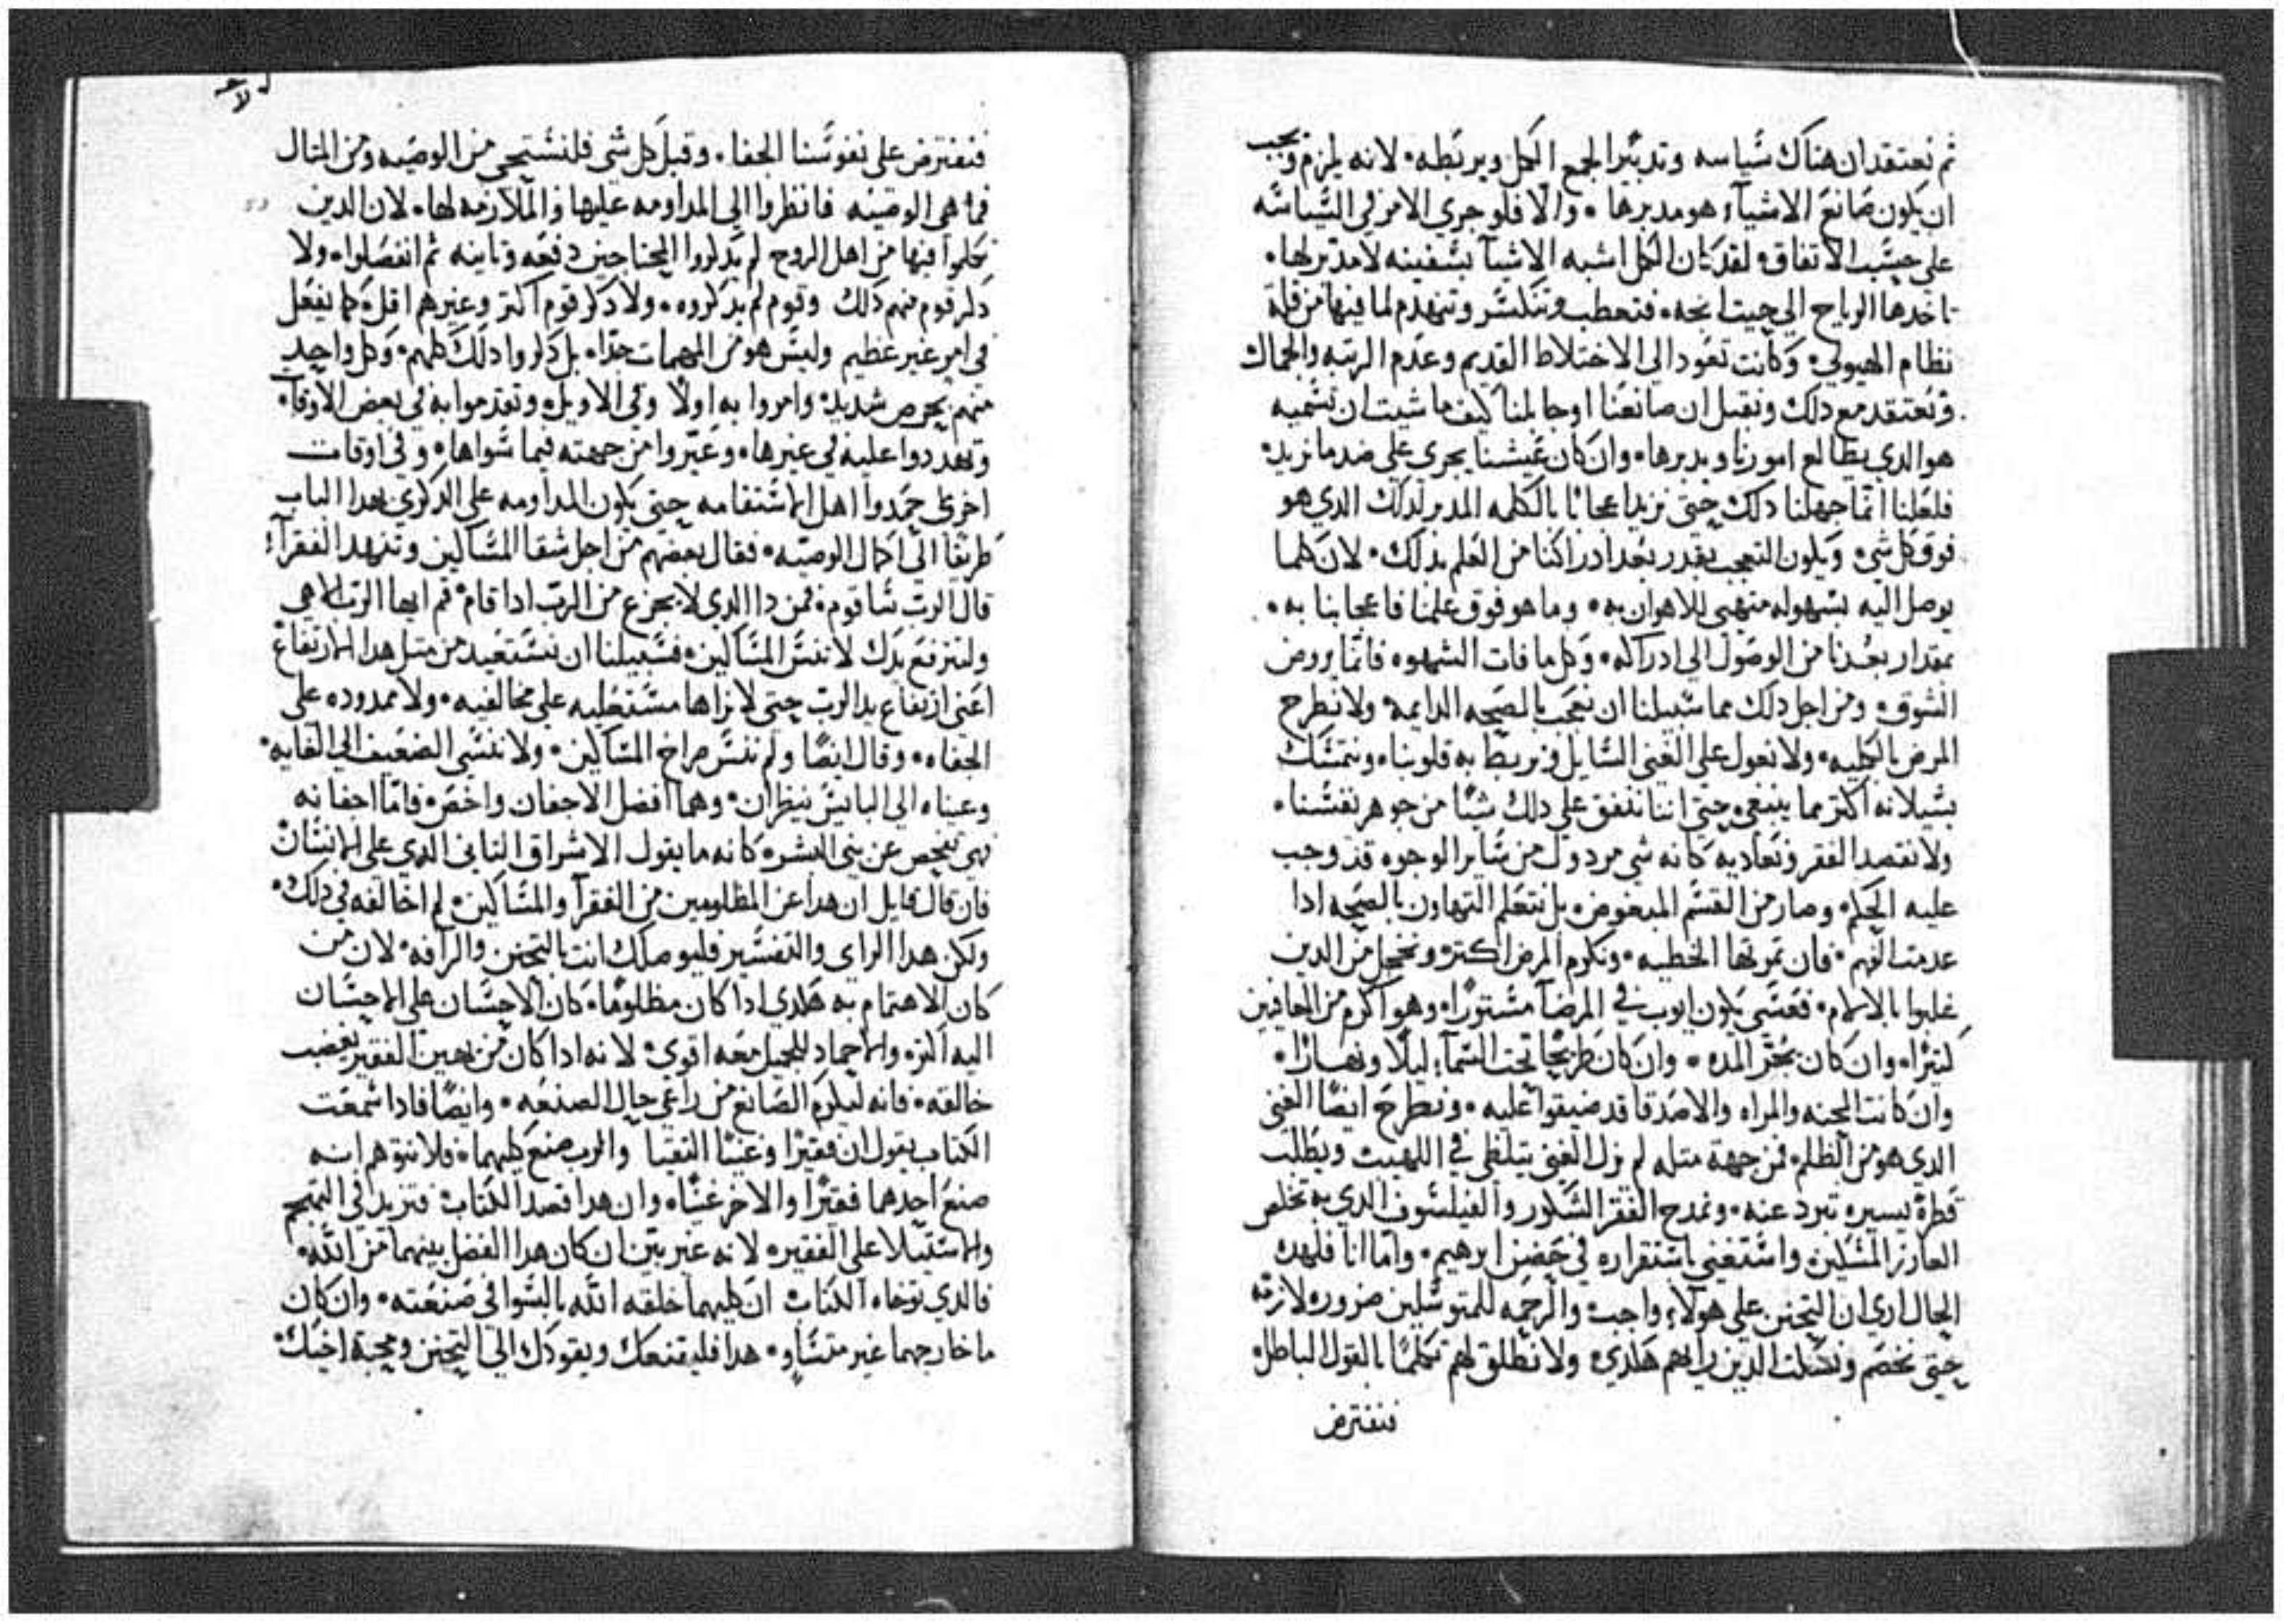 ثم نعتقد ان هناك سياسه وتدبيرا لجمع الكل وبربطه. لانه يلزم ويجب
ان يكون صانع الاشياء هو مدبرها. والا فلو جري الامر في السياسه
علي حسب الاتفاق لقد كان الكل اشبه الاشيا بسفينه لا مدبر لها.
تاخدها الرياح الي حيت فتحطب وتنكسر وتنهدم لما فيها من قلة
نظام الهيولي. وكانت تعود الي الاختلاط القديم وعدم الرتبه والجمال
ونعتقد مع دلك ونقبل ان صانعنا او جابلنا كيف ما شيت ان تسميه
هو الدي يطالع امورنا ويدبرها. وان كان عيشنا يجري علي ضد ما نريد.
فلعلنا انما جهلنا دلك حتي نزيد اعجابا بالكلمه المدبر لدلك الدي هو
فوق كل شي. ويكون التعجب بقدر بعد ادراكنا من العلم بدلك. لان كلما
يوصل اليه بسهوله منتهي للاهوان به. وما هو فوق علمنا فاعجابنا به.
بمقدار بعدنا من الوصول الي ادراكه. وكل ما فات الشهوه فانما يروض
الشوق. ومن اجل دلك مما سبيلنا ان نعجب بالصحه الدايمه ولا نطرح
المرض بالكليه. ولا نعول علي الغني السايل ونربط به قلوبنا. ونتمسك
بسيلانه اكتر مما ينبغي حتي اننا ننفق علي دلك شيا من جوهر نفسنا.
ولا نقصد الفقر ونعاديه كانه شي مردول من ساير الوجوه قد وجب
عليه الحكم. وصار من القسم المبغوض. بل نتعلم التهاون بالصحه ادا
عدمت الفهم. فان تمرتها الخطيه. ونكرم المرض اكتر ونخجل من الدين
غلبوا بالالام. فعسي يكون ايوب في المرضا مستورا. وهو اكرم من المعافين
كتيرا. وان كان يحتر المده. وان كان طريحا تحت السماء ليلا ونهارا.
وان كانت المحنه والمراه والاصدقا قد ضيقوا عليه. ونطرح ايضا الغني
الدي هو من الظلم. فمن جهة متله لم يزل الغني يتلظي في اللهيب ويطلب
قطرة يسيره تبرد عنه. ونمدح الفقر الشكور والفيلسوف الدي به تخلص
العازر المسكين. واستغني باستقراره في حضن ابرهيم. واما انا فلهدا
الحال اري ان التحنن علي هولاء واجب والرحمه للمتوسلين ضروره لازمه
حتي نخصم ونسكت الدين رايهم هكدي. ولا نطلق لهم تكلما بالقول الباطل.
فنفترض
فنفترض علي نفوسنا الجفا. وقبل كل شي فلنستحي من الوصيه ومن المتال
فما هي الوصيه فانظروا الي المداومه عليها والملازمه لها. لان الدين
تكلموا فيها من اهل الروح. لم يدكروا المحتاجين دفعه وتانيه ثم انفصلوا. ولا
دكر قوم منهم دلك وقوم لم يدكروه. ولا دكر قوم اكتر وغيرهم اقل كما يفعل
في امر غير عظيم وليس هو من المهمات جدا. بل دكروا دلك كلهم. وكل واحد
منهم بحرص شديد. وامروا به اولا وفي الاويل. وتقدموا به في بعض الاوقات.
وتهددوا عليه في غيرها. وعيروا من جهته فيما سواها. وفي اوقات
اخري حمدوا اهل الاستقامه حتي يكون المداومه علي الدكري بهدا الباب
طريقا الي اكمال الوصيه. فقال بعضهم من اجل شقا المساكين وتنهد الفقراء
قال الرب ساقوم. فمن دا الدي لا يجزع من الرب ادا قام. قم ايها الرب الاهي
ولترتفع يدك لا تنس المساكين. فسبيلنا ان نستعيد من متل هدا الارتفاع
اعني ارتفاع يد الرب حتي لا نراها مستعليه علي مخالفيه. ولا ممدوده علي
الجفاه. وقال ايضا ولم تنس صراخ المساكين. ولا تنسي الضعيف الي الغايه.
وعيناه الي البايس تنظران. وهما افضل الاجفان واخص. فاما اجفانه
فهي تفحص عن بني البشر. كانه ما يقول الاشراق التاني الدي علي الانسان
فان قال قايل ان هدا عن المظلومين من الفقرا والمساكين. لم اخالفه في دلك.
ولكن هدا الراي والتفسير فليوصلك انت بالتحنن والرافه. لان من
كان الاهتمام به هكدي ادا كان مظلوما. كان الاحسان علي الاحسان
اليه اكتر. والاحماد للجميل معه اقوي. لانه ادا كان من يهين الفقير يغضب
خالقه. فانه ليكرم الصانع من راعي حال الصنعه. وايضا فادا سمعت
الكتاب يقول ان فقيرا وغنيا التقيا والرب صنع كليهما. فلا تتوهم انه
صنع احدهما فقيرا والاخر غنيا. وان هدا قصد الكتاب فتزيد في التهجم
والاستيلا علي الفقير. لانه غير بين ان كان هدا الفضل بينهما من الله.
فالدي توخاه الكتاب ان كليهما خلقه الله بالسوا في صنعته. وان كان
ما خارجهما غير متساو. هدا فليقنعك ويقودك الي التحنن ومحبة اخيك.